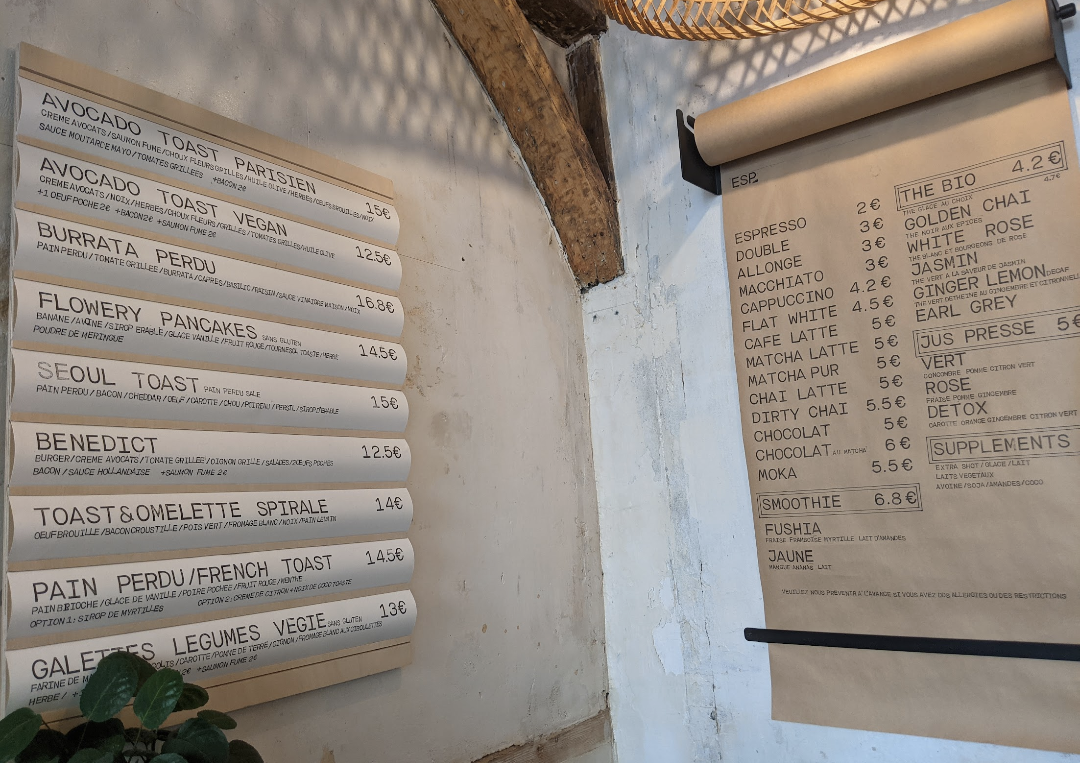 AVOCADO TOAST PARISIEN 15€
CREME AVOCATS/SAUMON FUME/CHOUX FLEURS GRILLES/HUILE OLIVE/HERBES/OEUFS BROUILLES/NOIX
SAUCE MOUTARDE MAYO/TOMATES GRILLEES +BACON 2€
AVOCADO TOAST VEGAN 12.5€
CREME AVOCATS/NOIX/HERBES/CHOUX FLEURS/GRILLES/TOMATES GRILLES/HUILE OLIVE
+1 OEUF POCHE 2€ +BACON 2€ +SAUMON FUME 2€
BURRATA PERDU 16.8€
PAIN PERDU/TOMATE GRILLEE/BURRATA/CAPRES/BASILIC/RAISIN/SAUCE VINAIGRE MAISON/NOIX
FLOWERY PANCAKES SANS GLUTEN 14.5€
BANANE/AVOINE/SIROP ERABLE/GLACE VANILLE/FRUIT ROUGE/TOURNESOL TOASTE/HERBE
POUDRE DE MERINGUE
SEOUL TOAST PAIN PERDU SALE 15€
PAIN PERDU/BACON/CHEDDAR/OEUF/CAROTTE/CHOU/POIREAU/PERSIL/SIROP D'ERABLE
BENEDICT 12.5€
BURGER/CREME AVOCATS/TOMATE GRILLEE/OIGNON GRILLE/SALADES/2OEUFS POCHES
BACON/SAUCE HOLLANDAISE +SAUMON FUME 2€
TOAST&OMELETTE SPIRALE 14€
OEUF BROUILLE/BACON CROUSTILLE/POIS VERT/FROMAGE BLANC/NOIX/PAIN LEVAIN
PAIN PERDU/FRENCH TOAST 14.5€
PAIN BRIOCHE/GLACE DE VANILLE/POIRE POCHEE/FRUIT ROUGE/MENTHE
OPTION 1: SIROP DE MYRTILLES OPTION 2: CREME DE CITRON+NOIX DE COCO TOASTE
GALETTES LEGUMES VEGIE SANS GLUTEN 13€
FARINE DE /CAROTTE/POMME DE TERRE/OIGNON/FROMAGE BLANC AUX CIBOULETTES
HERBE/ +SAUMON FUME 2€
ESP.
ESPRESSO 2€
DOUBLE 3€
ALLONGE 3€
MACCHIATO 3€
CAPPUCCINO 4.2€
FLAT WHITE 4.5€
CAFE LATTE 5€
MATCHA LATTE 5€
MATCHA PUR 5€
CHAI LATTE 5€
DIRTY CHAI 5.5€
CHOCOLAT 5€
CHOCOLAT AU MATCHA 6€
MOKA 5.5€
SMOOTHIE 6.8€
FUSHIA
FRAISE FRAMBOISE MYRTILLE LAIT D'AMANDES
JAUNE
MANGUE ANANAS LAIT
THE BIO 4.2€
THE GLACE AU CHOIX 4.7€
GOLDEN CHAI
THE NOIR AUX EPICES
WHITE ROSE
THE BLANC ET BOURGEONS DE ROSE
JASMIN
THE VERT A LA SAVEUR DE JASMIN
GINGER LEMON DECAF
THE VERT DETHEINE AU GINGEMBRE ET CITRONNELLE
EARL GREY
JUS PRESSE 5€
VERT
CONCOMBRE POMME CITRON VERT
ROSE
FRAISE POMME GINGEMBRE
DETOX
CAROTTE ORANGE GINGEMBRE CITRON VERT
SUPPLEMENTS
EXTRA SHOT/GLACE/LAIT
LAITS VEGETAUX
AVOINE/SOJA/AMANDES/COCO
VEUILLEZ NOUS PREVENIR A L'AVANCE SI VOUS AVEZ DES ALLERGIES OU DES RESTRICTIONS